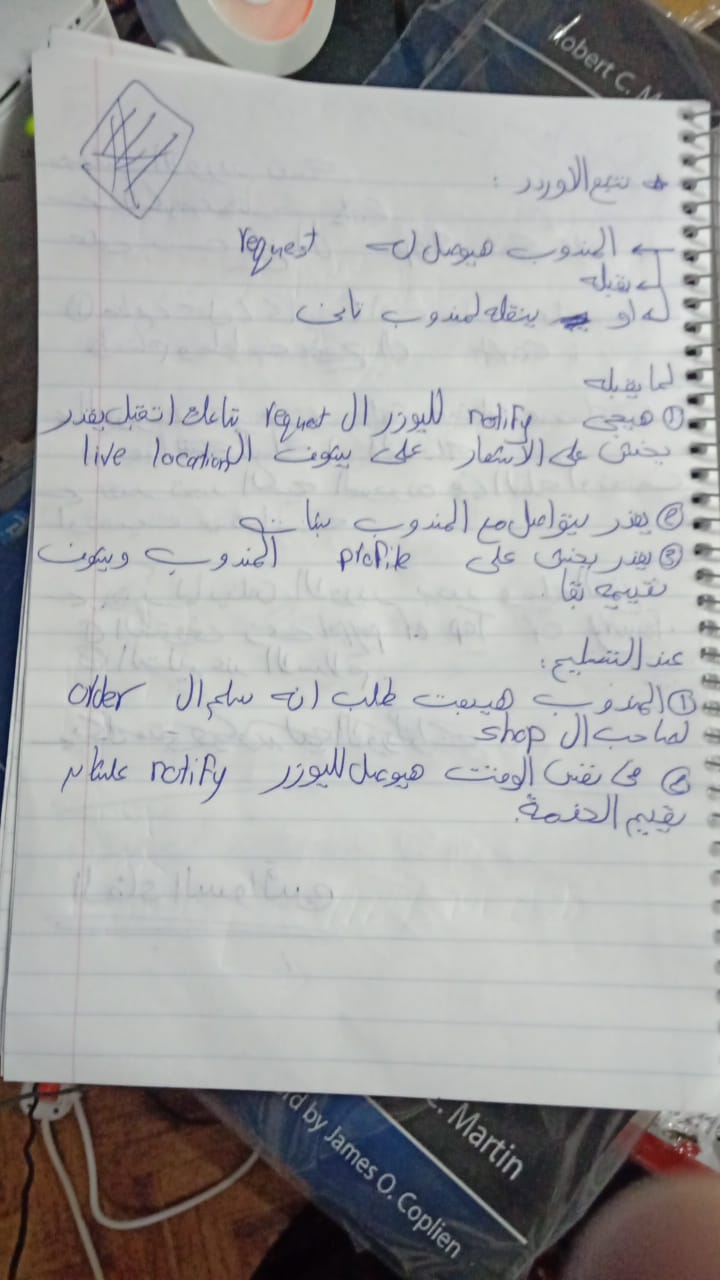 Robert C. M
* تتبع الاوردر :
← المندوب هيوصل له request
↳ يقبله
↳ او ينقله لمندوب تانى
لما يقبله
① هيجى notify لليوزر ال request بتاعك اتقبل يقدر
يخش على الاشعار على يشوف ال live location
② يقدر يتواصل مع المندوب
③ يقدر يخش على profile المندوب ويشوف
تقييمه بقا
عند التسليم :
① المندوب هيبعت طلب انه سلم ال order
لصاحب ال shop
② فى نفس الوقت هيوصل لليوزر notify علشان
يقييم الخدمة.
C. Martin
d by James O. Coplien